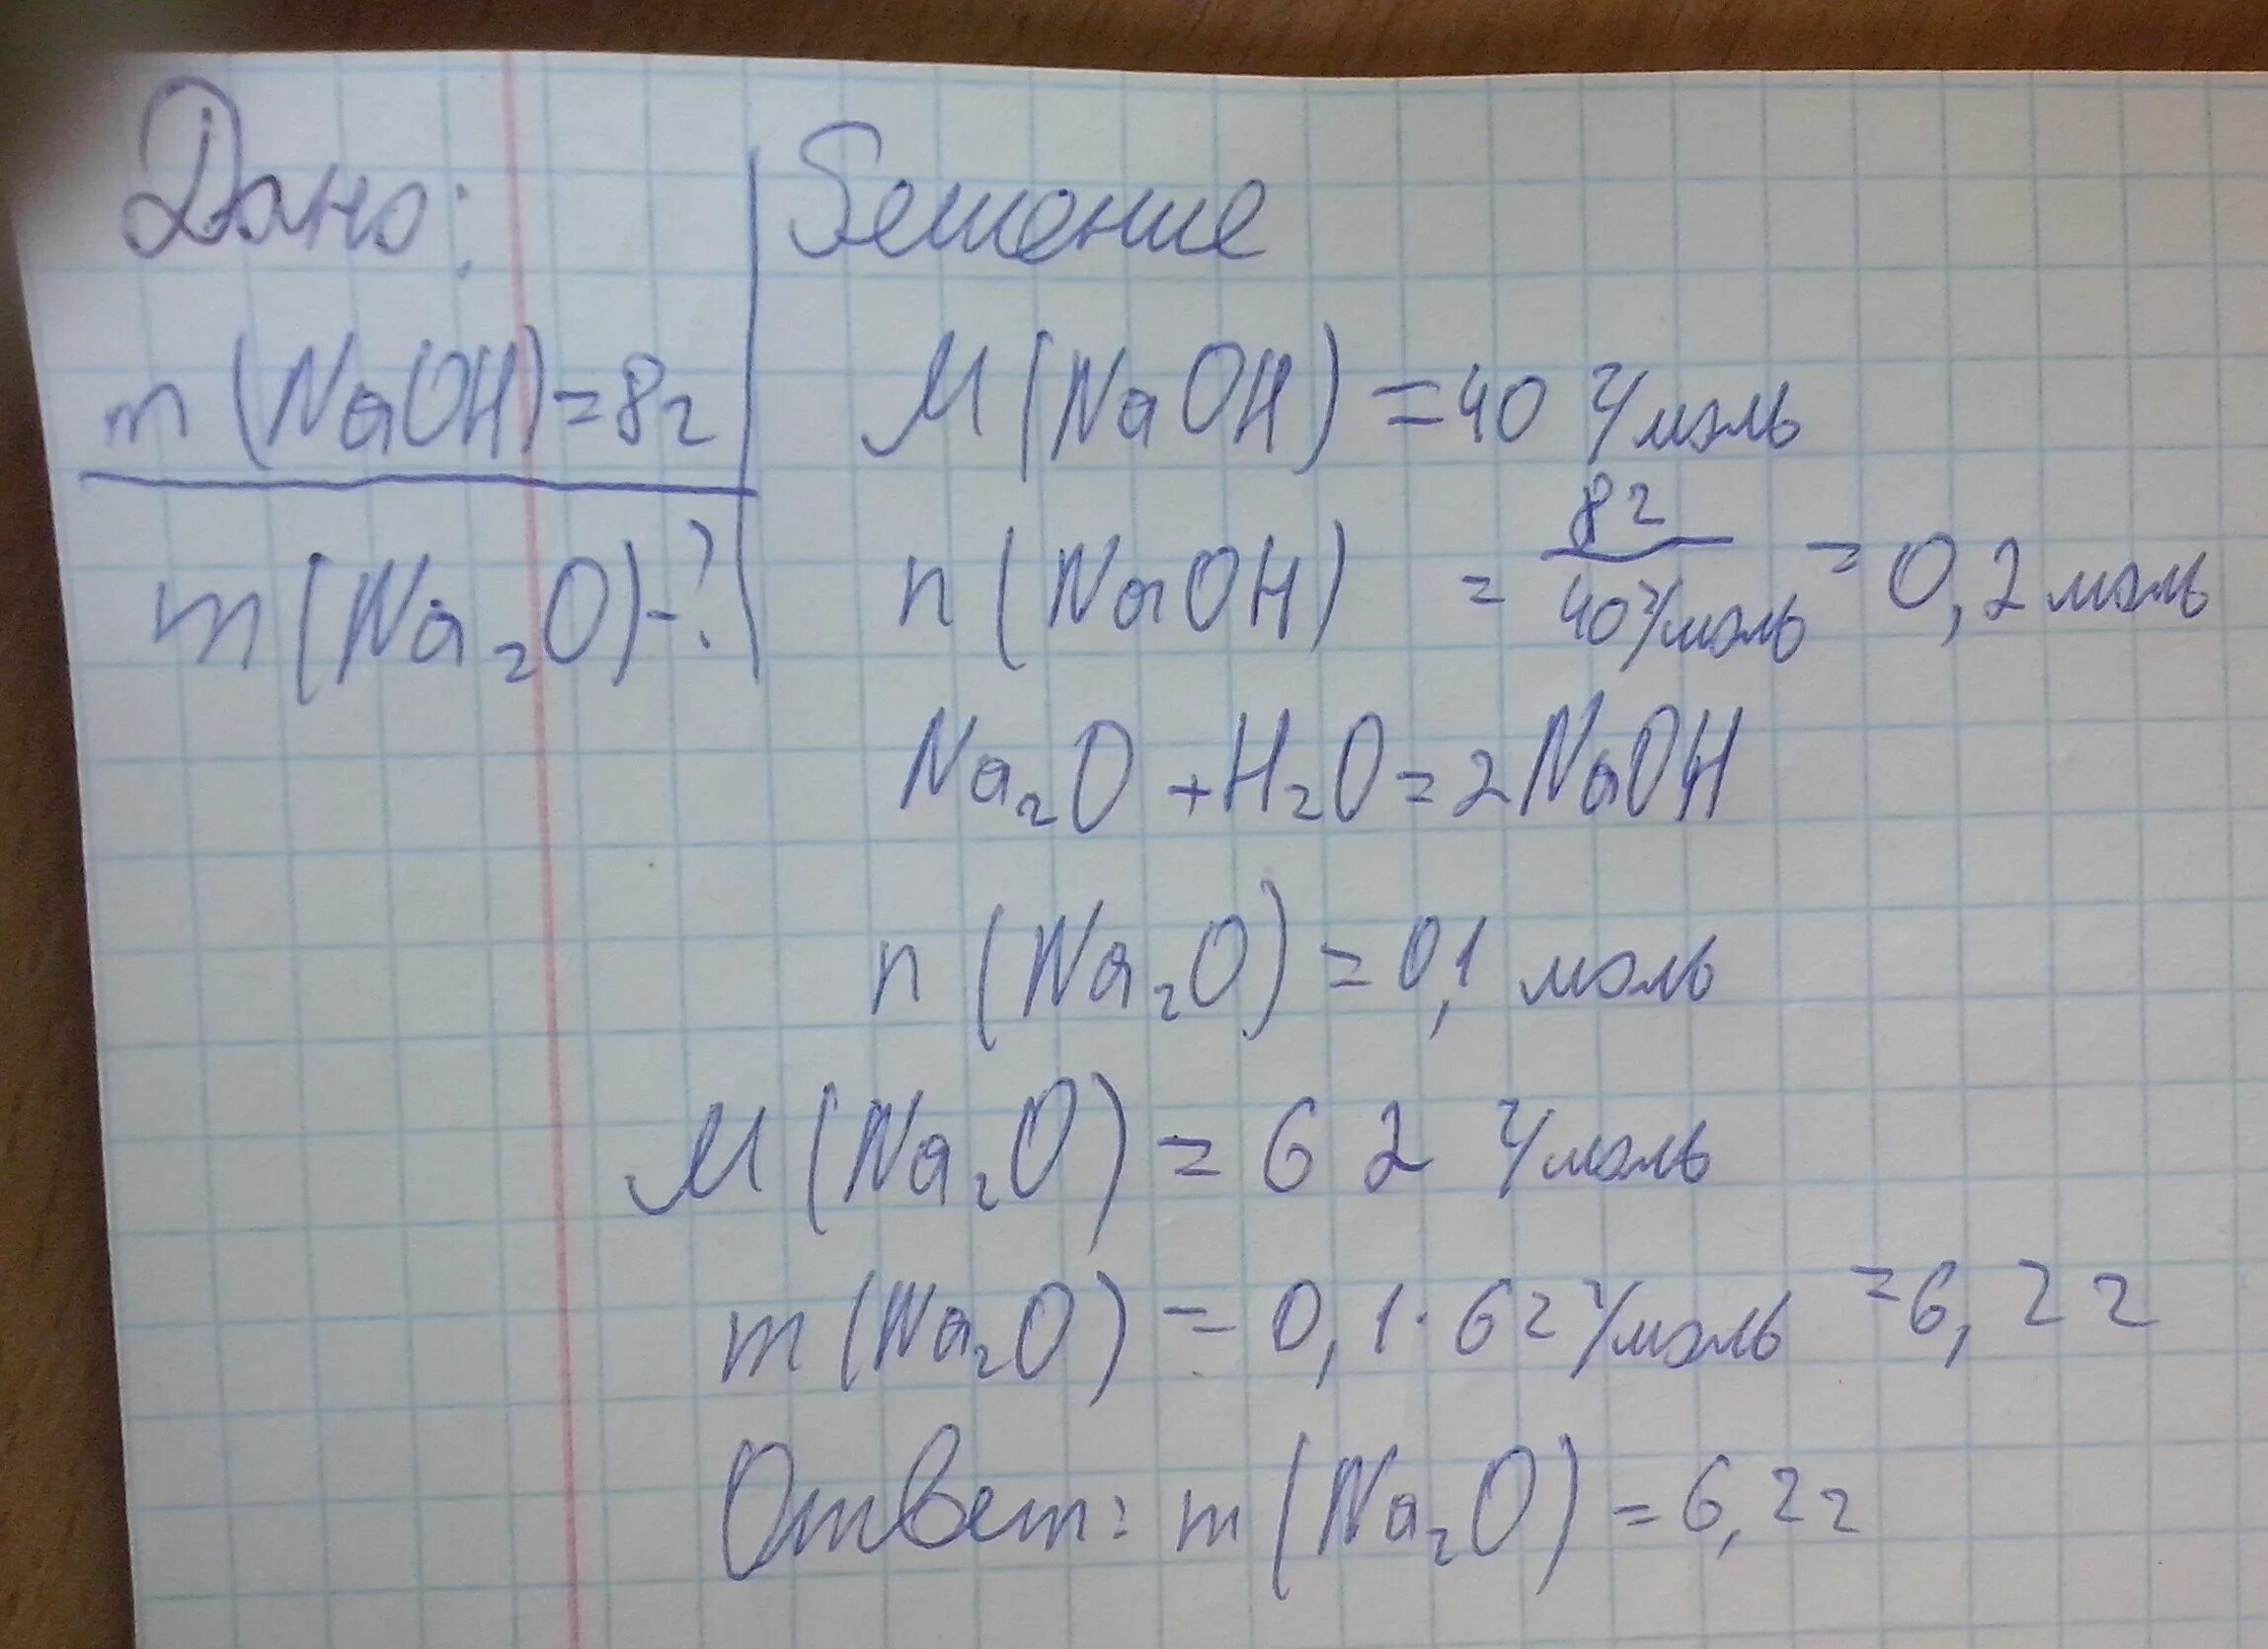 Дано:
m (NaOH) = 8г
m (Na₂O) - ?
Решение
M (NaOH) = 40 г/моль
n (NaOH) = 8г / 40 г/моль = 0,2 моль
Na₂O + H₂O = 2 NaOH
n (Na₂O) = 0,1 моль
M (Na₂O) = 62 г/моль
m (Na₂O) = 0,1 · 62 г/моль = 6,2 г
Ответ: m (Na₂O) = 6,2 г